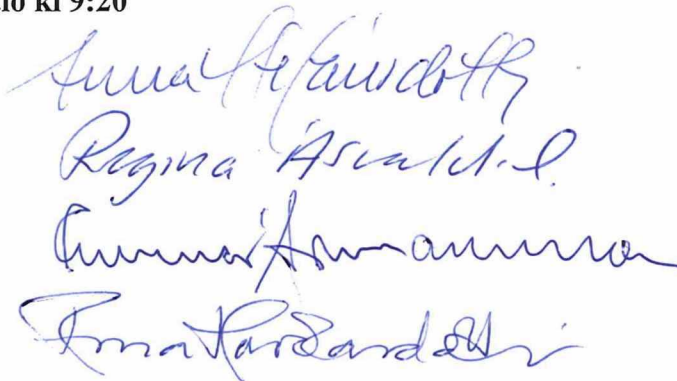 kl 9:20
Anna Stefánsdóttir
Regína Ásvaldsd.
Gunnar Ármannsson
Rósa Hávarðardóttir